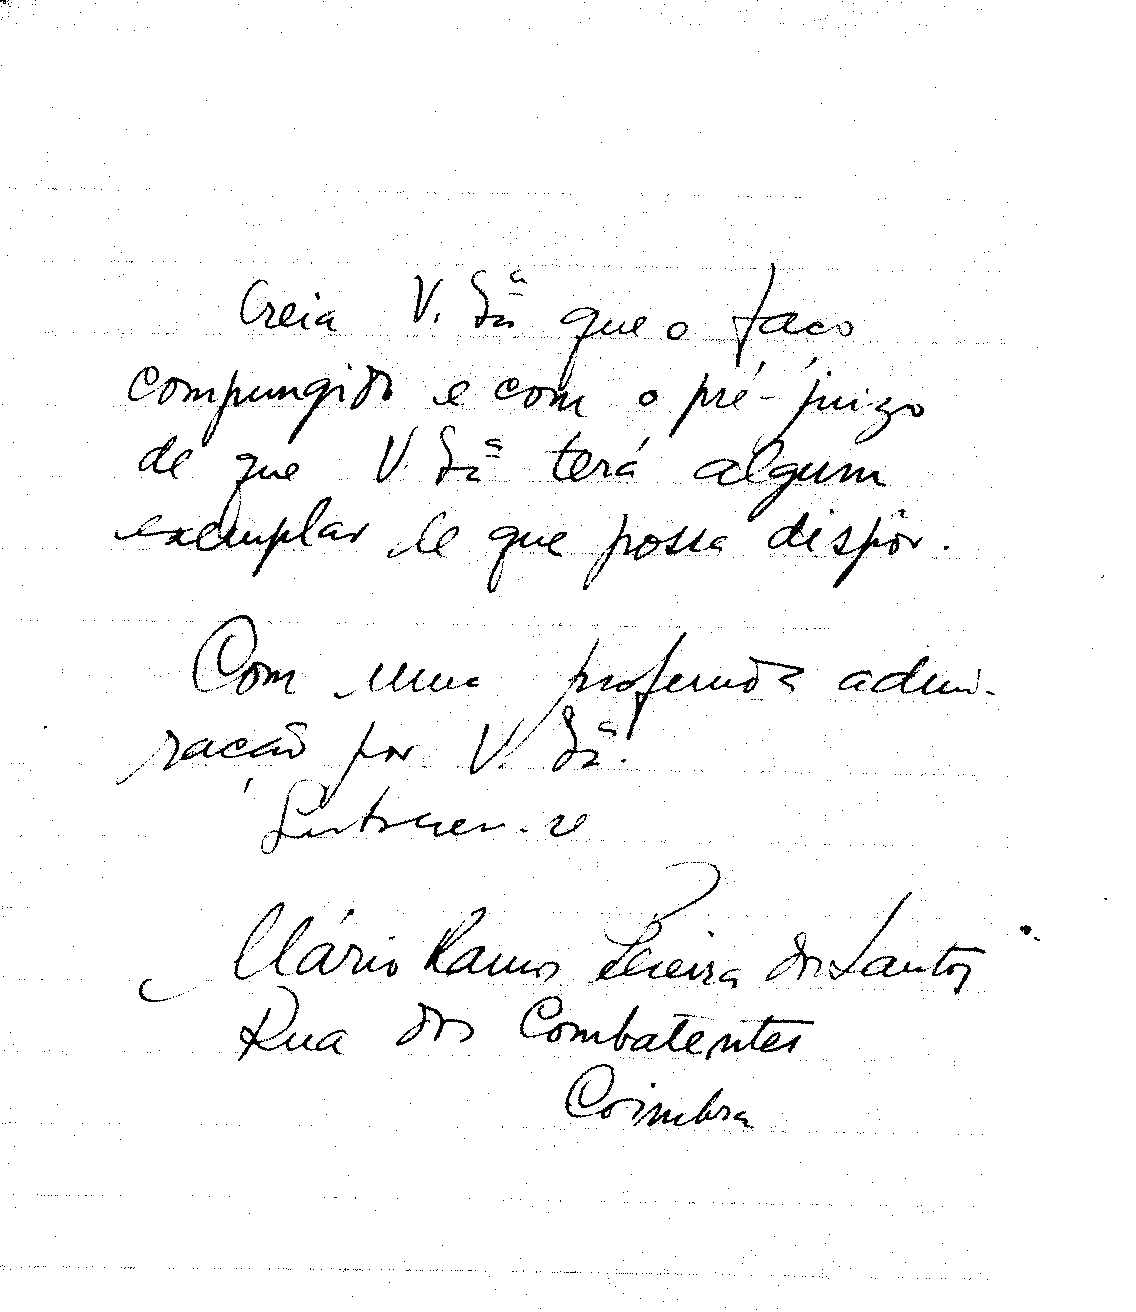 Creia V. Sia que o faco
compungido e com o pré-juizo
de que V. Sia terá algum
exemplar de que possa dispôr.
Com uma profunda admi-
ração por V. Sia.
Subscrev-se
Mário Ramos Pereira dos Santos
Rua dos Combatentes
Coimbra